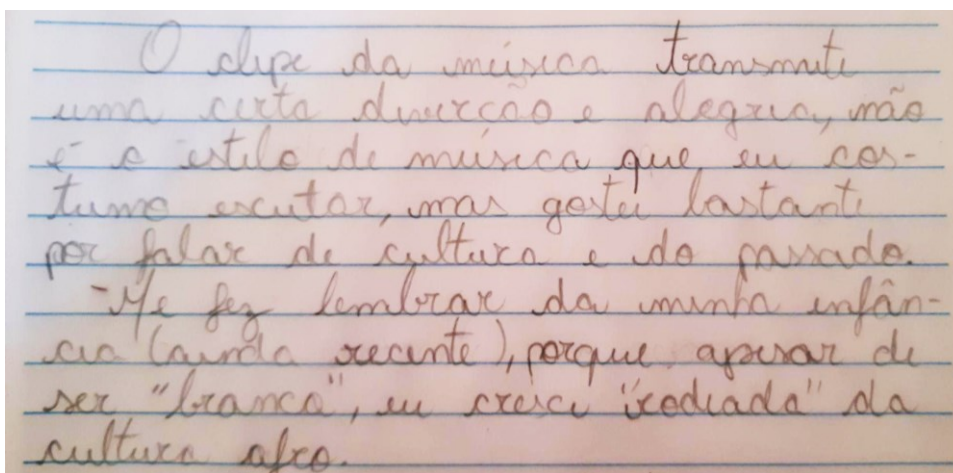 O clipe da música transmite
uma certa diverção e alegria, não
é o estilo de música que eu cos-
tumo escutar, mas gostei bastante
por falar de cultura e do passado.
-Me fez lembrar da minha infân-
cia (ainda recente), porque apesar de
ser "branca", eu cresci "rodiada" da
cultura afro.